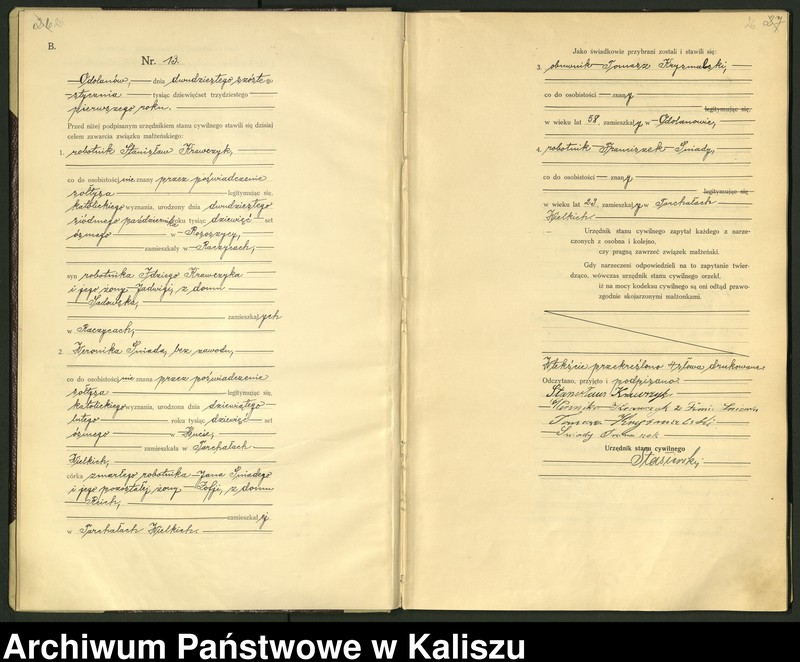 B.
Nr. 13.
Odolanów, dnia dwudziestego szóste=
stycznia tysiąc dziewięćset trzydziestego
pierwszego roku.
Przed niżej podpisanym urzędnikiem stanu cywilnego stawili się dzisiaj
celem zawarcia związku małżeńskiego:
1. robotnik Stanisław Krawczyk,
co do osobistości, nie znany przez poświadczenie
sołtysa legitymując się,
katolickiego wyznania, urodzony dnia dwudziestego
siódmego października roku tysiąc dziewięć set
ósmego w Rososzycy,
zamieszkały w Raczycach,
syn robotnika Idziego Krawczyka
i jego żony Jadwigi, z domu
Sadowska,
zamieszkałych
w Raczycach,
2. Weronika Śniada, bez zawodu,
co do osobistości, nie znana przez poświadczenie
sołtysa legitymując się,
katolickiego wyznania, urodzona dnia dziewiątego
lutego roku tysiąc dziewięć set
ósmego w
zamieszkała w Tarchałach
Wielkich,
córka zmarłego robotnika Jana Śniadego
i jego pozostałej żony Zofji, z domu
Reich,
zamieszkałej
w Tarchałach Wielkich.
27
Jako świadkowie przybrani zostali i stawili się:
3. obuwnik Tomasz Krysmalski,
co do osobistości znany
legitymując się
w wieku lat 58, zamieszkały w Odolanowie,
4. robotnik Franciszek Śniady,
co do osobistości znany
legitymując się
w wieku lat 23, zamieszkały w Tarchałach
Wielkich.
Urzędnik stanu cywilnego zapytał każdego z narze-
czonych z osobna i kolejno,
czy pragną zawrzeć związek małżeński.
Gdy narzeczeni odpowiedzieli na to zapytanie twier-
dząco, wówczas urzędnik stanu cywilnego orzekł,
iż na mocy kodeksu cywilnego są oni odtąd prawo-
zgodnie skojarzonymi małżonkami.
W tekście przekreślono 4 słowa drukowane.
Odczytano, przyjęto i podpisano.
Stanisłaus Krawczyk
Tomasz Krysmalski
Śniady
Urzędnik stanu cywilnego
Stasiewski
Archiwum Państwowe w Kaliszu